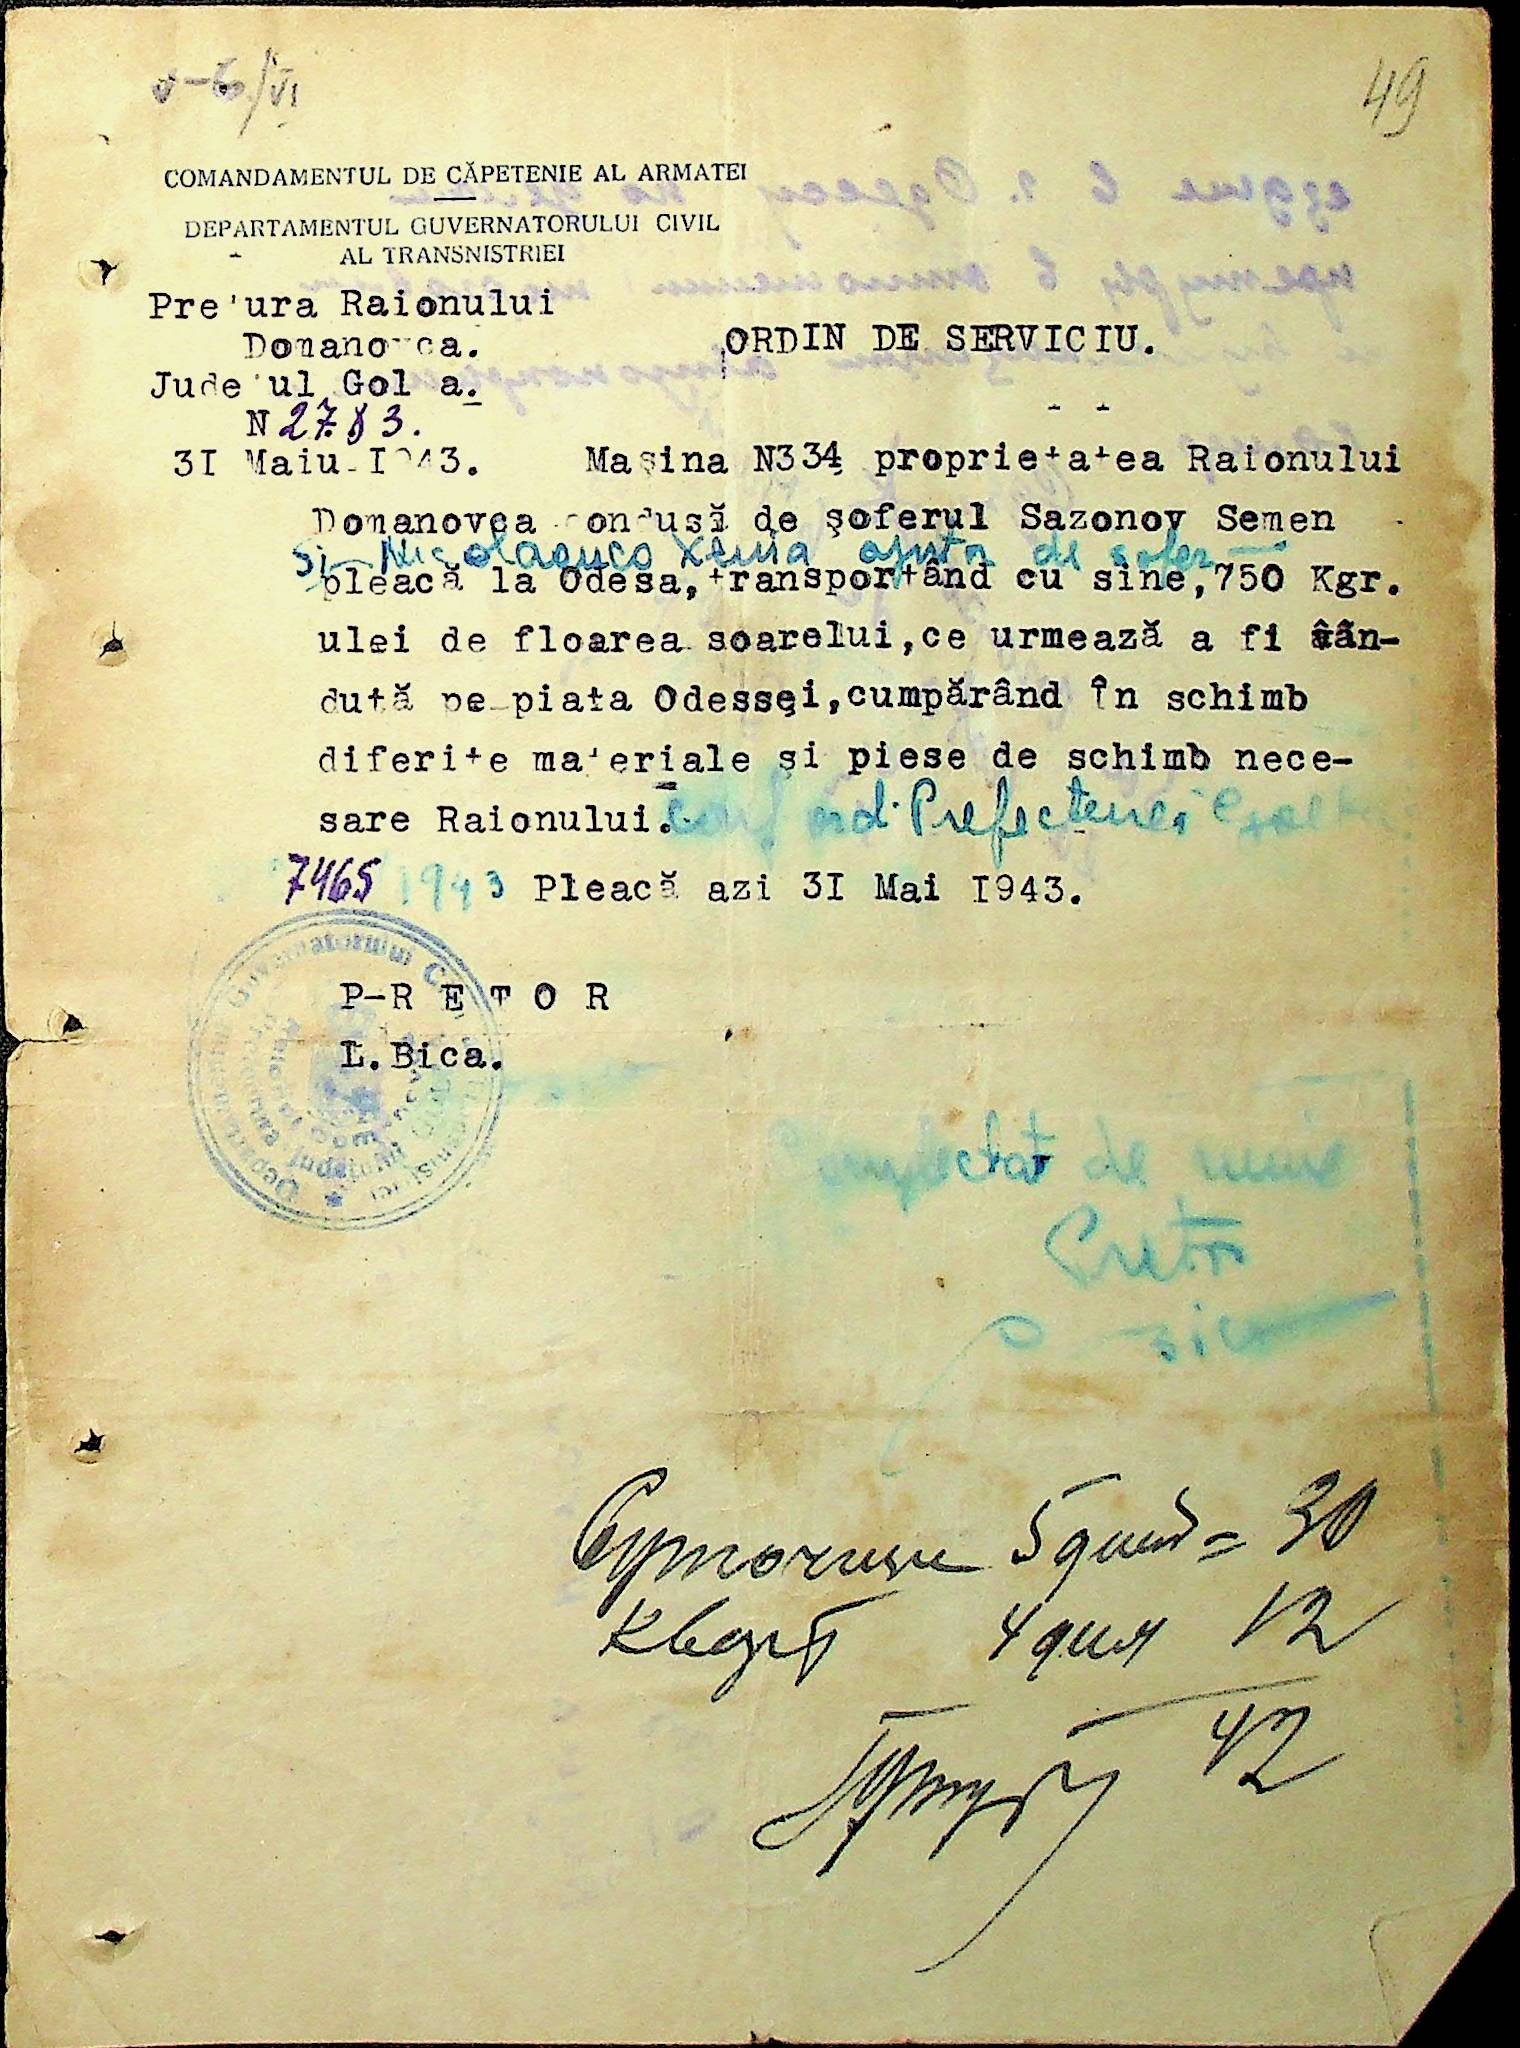 49
COMANDAMENTUL DE CĂPETENIE AL ARMATEI
DEPARTAMENTUL GUVERNATORULUI CIVIL
AL TRANSNISTRIEI
Pretura Raionului
Domanovca.
Judetul Golta.
N 2783.
31 Maiu 1943.
ORDIN DE SERVICIU.
Maşina N334 proprietatea Raionului
Domanovca condusă de şoferul Sazonov Semen
şi Nicolaenco Xenia ajutor de şofer
pleacă la Odesa, transportând cu sine, 750 Kgr.
ulei de floarea soarelui, ce urmează a fi vân-
dută pe piata Odessei, cumpărând în schimb
diferite materiale şi piese de schimb nece-
sare Raionului. conf ord. Prefecturei Golta
7465 1943 Pleacă azi 31 Mai 1943.
P-RETOR
L. Bica.
Completat de mine
Pretor
Суточные 5 дней = 30
Кварт 4 дня 12
42